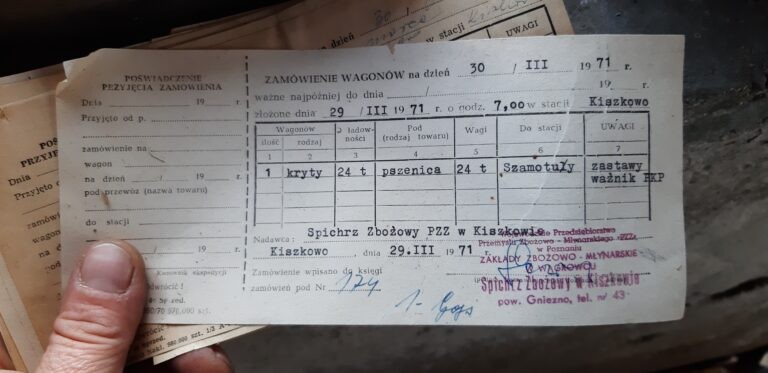 30
w stacji
dzień
UWAGI
POŚWIADCZENIE
PRZYJĘCIA ZAMÓWIENIA
Dnia 19 r.
Przyjęto od p.
zamówienie na
wagon
na dzień / 19 r.
pod przewóz (nazwa towaru)
do stacji
/ 19 r.
Kierownik ekspedycji
ZAMÓWIENIE WAGONÓW na dzień 30 / III 1971 r.
ważne najpóźniej do dnia / 19 r.
złożone dnia 29 / III 1971 r. o godz. 7,00 w stacji Kiszkowo
Wagonów
ilość rodzaj
ładowności
Pod (rodzaj towaru)
Wagi
Do stacji
UWAGI
1 2 3 4 5 6 7
1 kryty 24 t pszenica 24 t Szamotuły zastawy
ważnik PKP
Spichrz Zbożowy PZZ w Kiszkowie
Nadawca:
Kiszkowo dnia 29.III 1971 r.
Zamówienie wpisano do księgi
zamówień pod Nr 174
Przedsiębiorstwo
Przemysłu Zbożowo - Młynarskiego "PZZ"
w Poznaniu
ZAKŁADY ZBOŻOWO - MŁYNARSKIE
W WĄGROWCU
Spichrz Zbożowy w Kiszkowie
pow. Gniezno, tel. nr 43